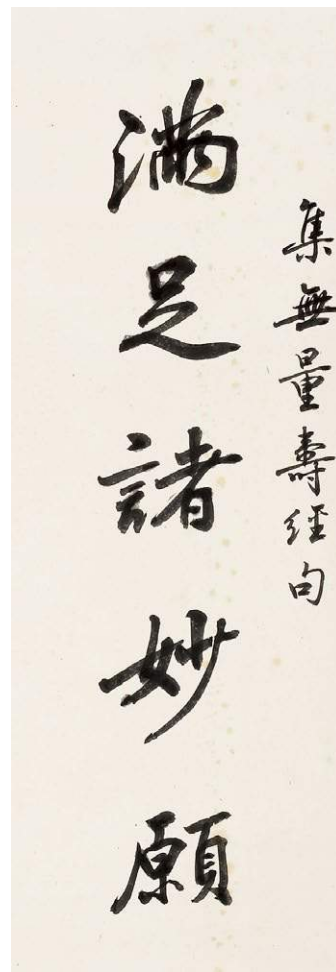 集無量壽經句
滿足諸妙願